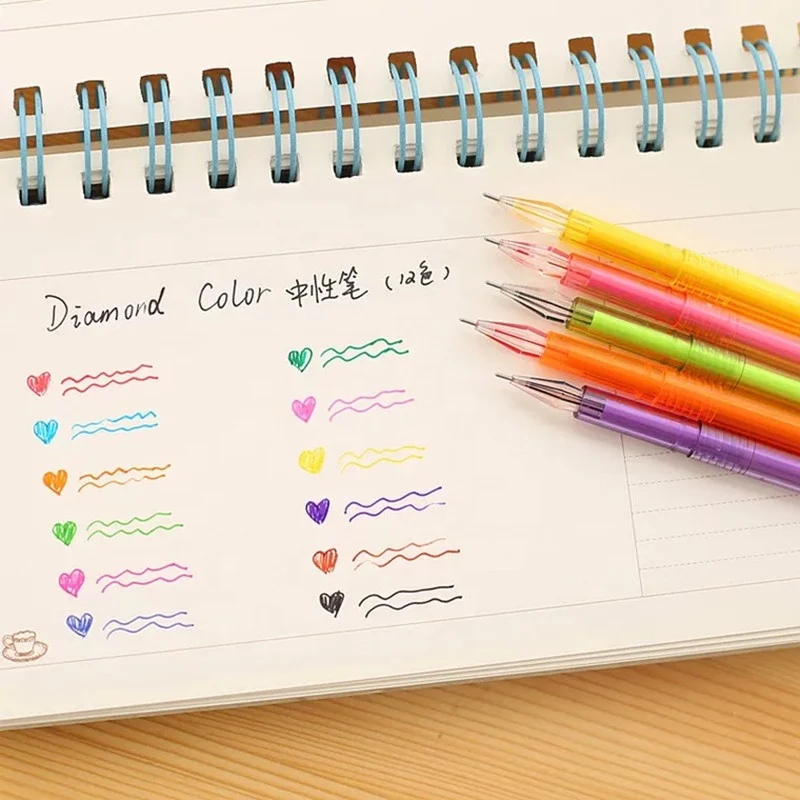 Diamond Color 中性笔 (12色)